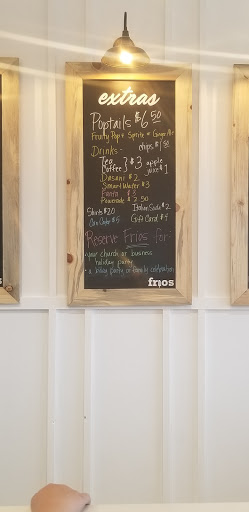 extras
Poptails $6.50
Fruity Pop + Sprite or Ginger Ale
Drinks - chips $1.50
Tea } $3 apple
Coffee juice $1
Dasani $2
Smart Water $3
Fanta $3
Powerade $2.50
Shirts $20 Italian Soda $2
Gift Card $4
Reserve Frios for:
your church or business
holiday party
a bday party or family celebration
frios
frios